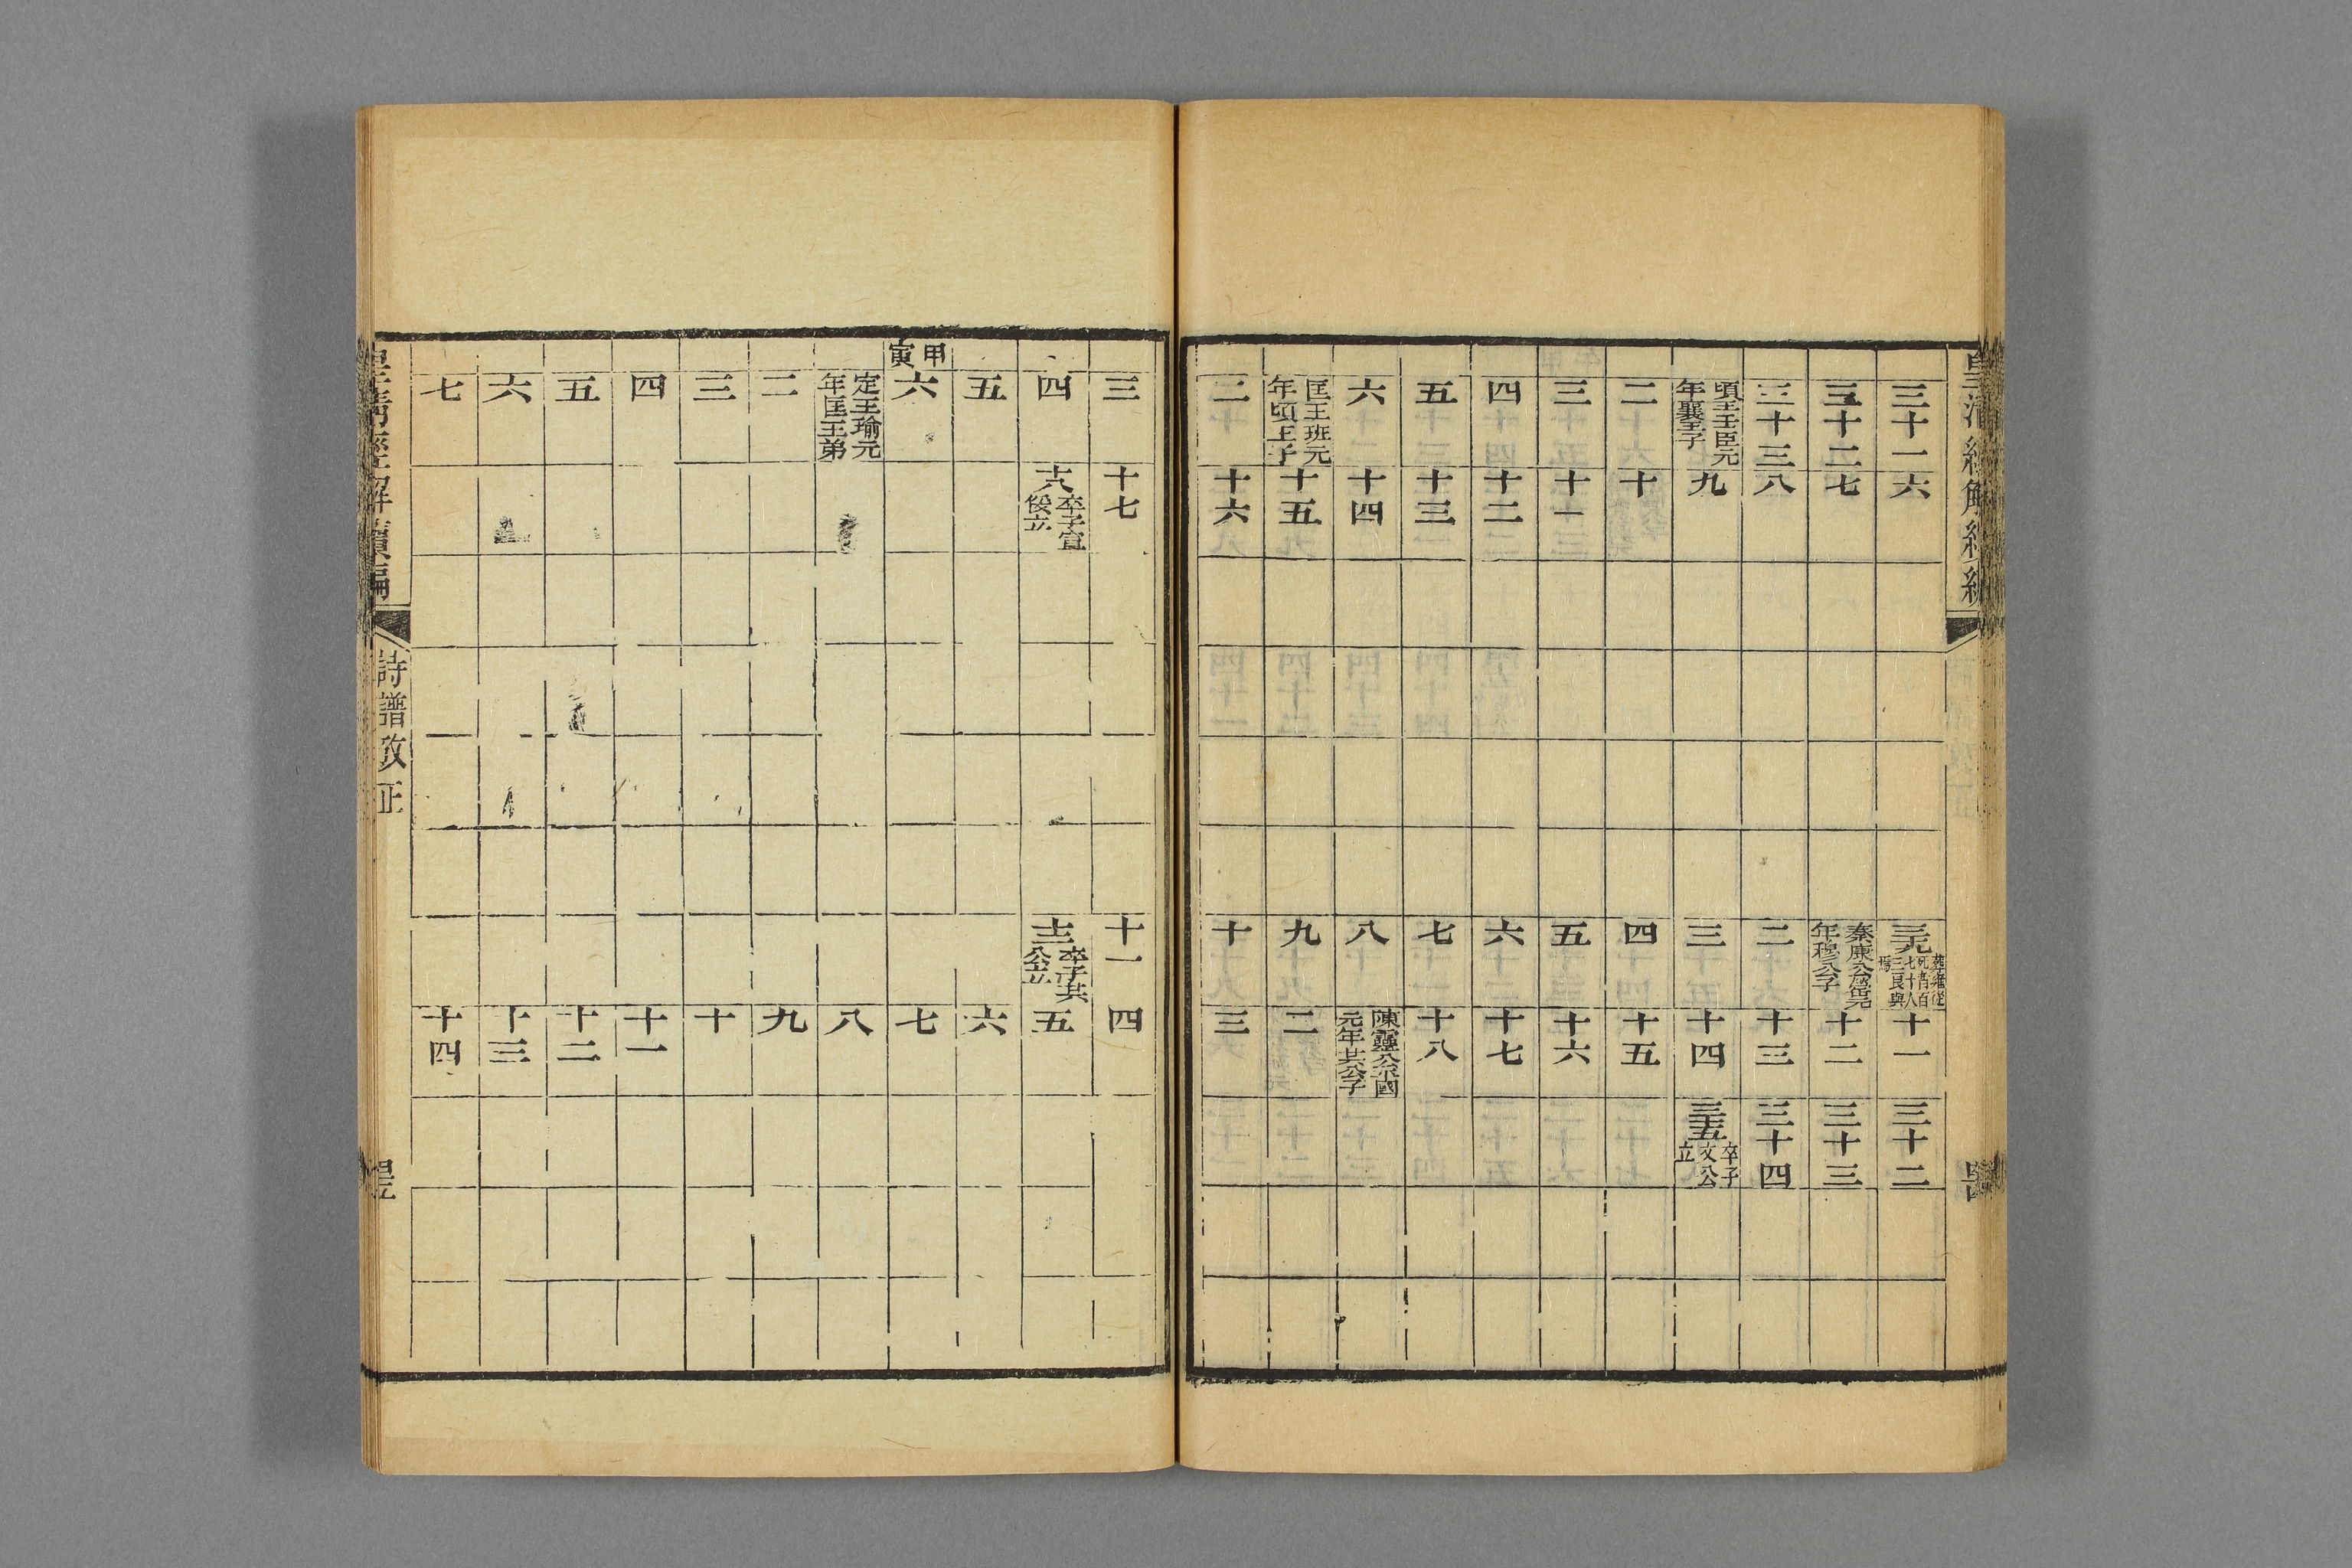 三十一 六 三十九 葬雍從死者百七十八三良與焉 十一 三十二
三十二 七 秦康公罃元年穆公子 十二 三十三
三十三 八 二 十三 三十四
頃王壬臣元年襄王子 九 三 十四 三十五 卒子文公立
二 十 四 十五
三 十一 五 十六
四 十二 六 十七
五 十三 七 十八
六 十四 八 陳靈公平國元年共公子
匡王班元年頃王子 十五 九 二
二 十六 十 三
三 十七 十一 四
四 十八 卒子宣俀立 十二 卒子共公立 五
五 六
甲寅 六 七
定王瑜元年匡王弟 八
二 九
三 十
四 十一
五 十二
六 十三
七 十四
皇清經解續編 詩譜攷正